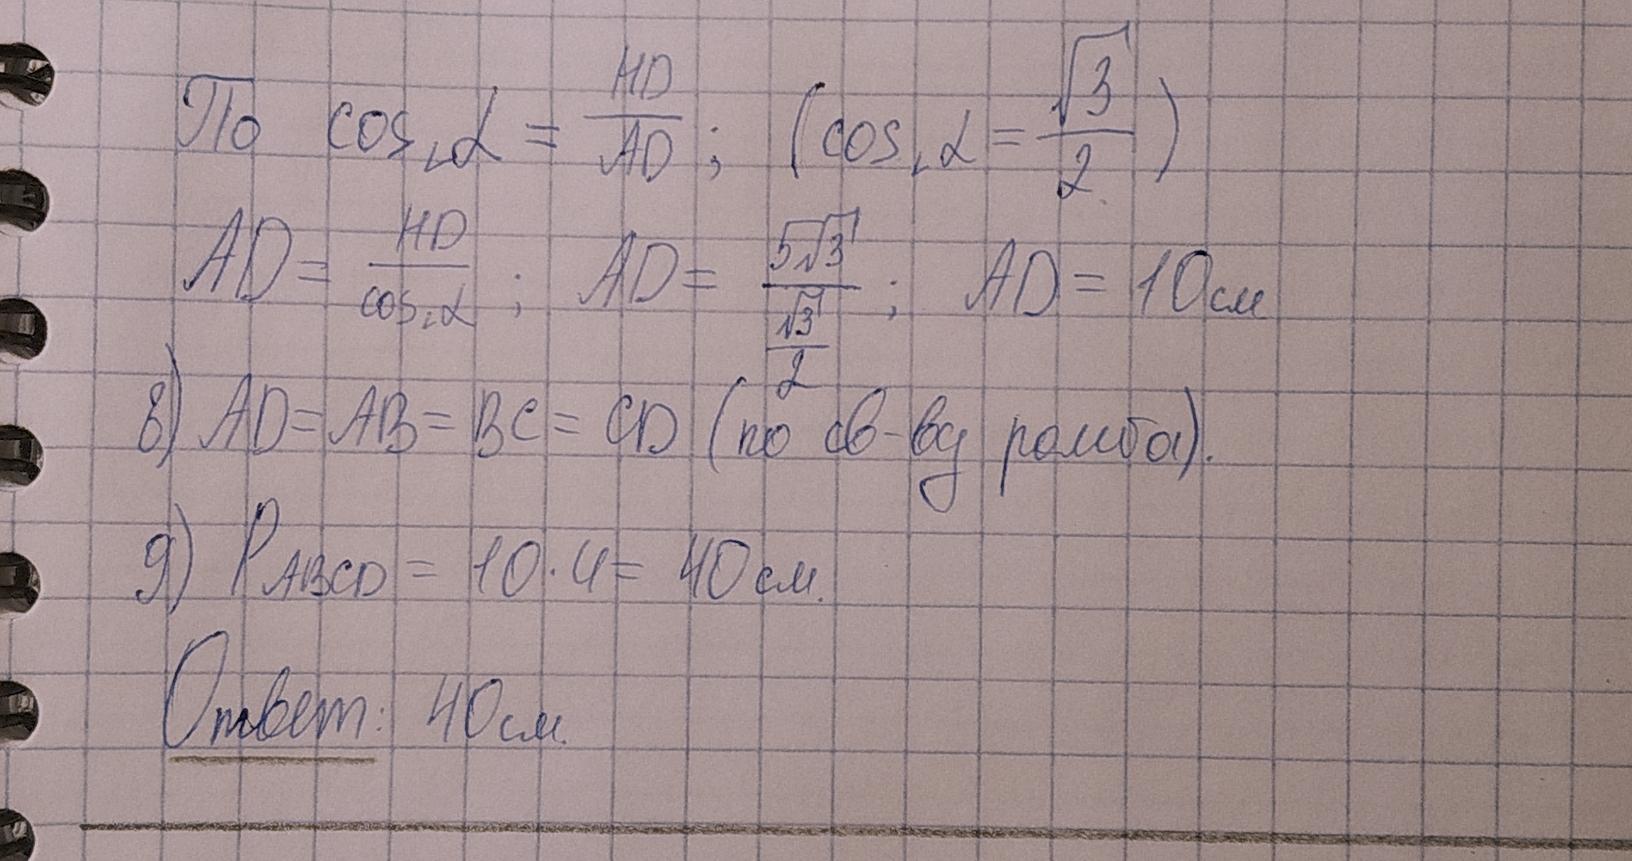 По cos∠α = HD/AD; (cos∠α = √3/2)
AD = HD/cos∠α; AD = 5√3/(√3/2); AD = 10см
8) AD = AB = BC = CD (по св-ву ромба).
9) P_ABCD = 10·4 = 40см.
Ответ: 40см.